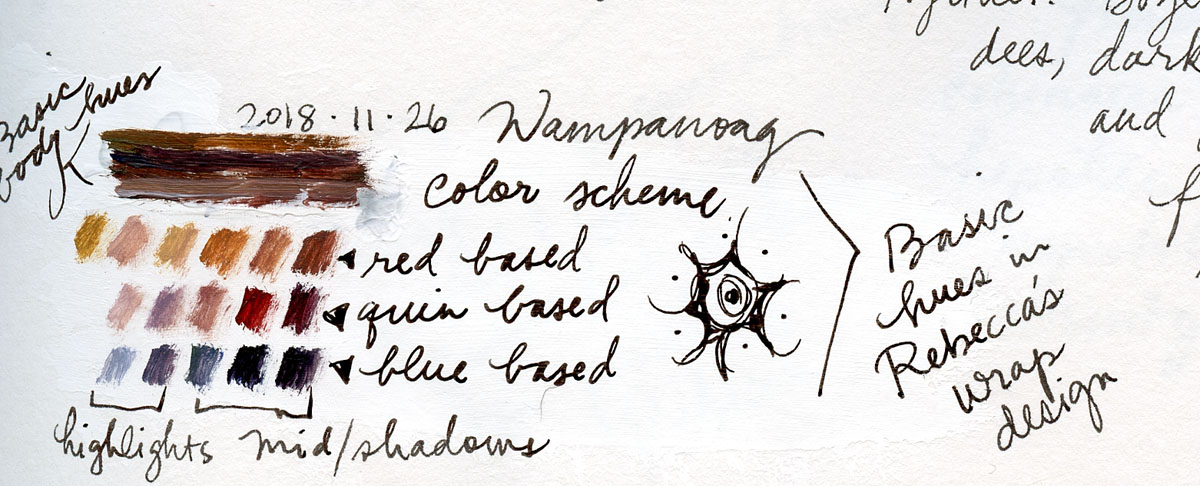 dees, dark
and
Basic
body hues
2018·11·26 Wampanoag
color scheme
red based
quin based
blue based
highlights mid/shadows
Basic
hues in
Rebecca's
wrap
design